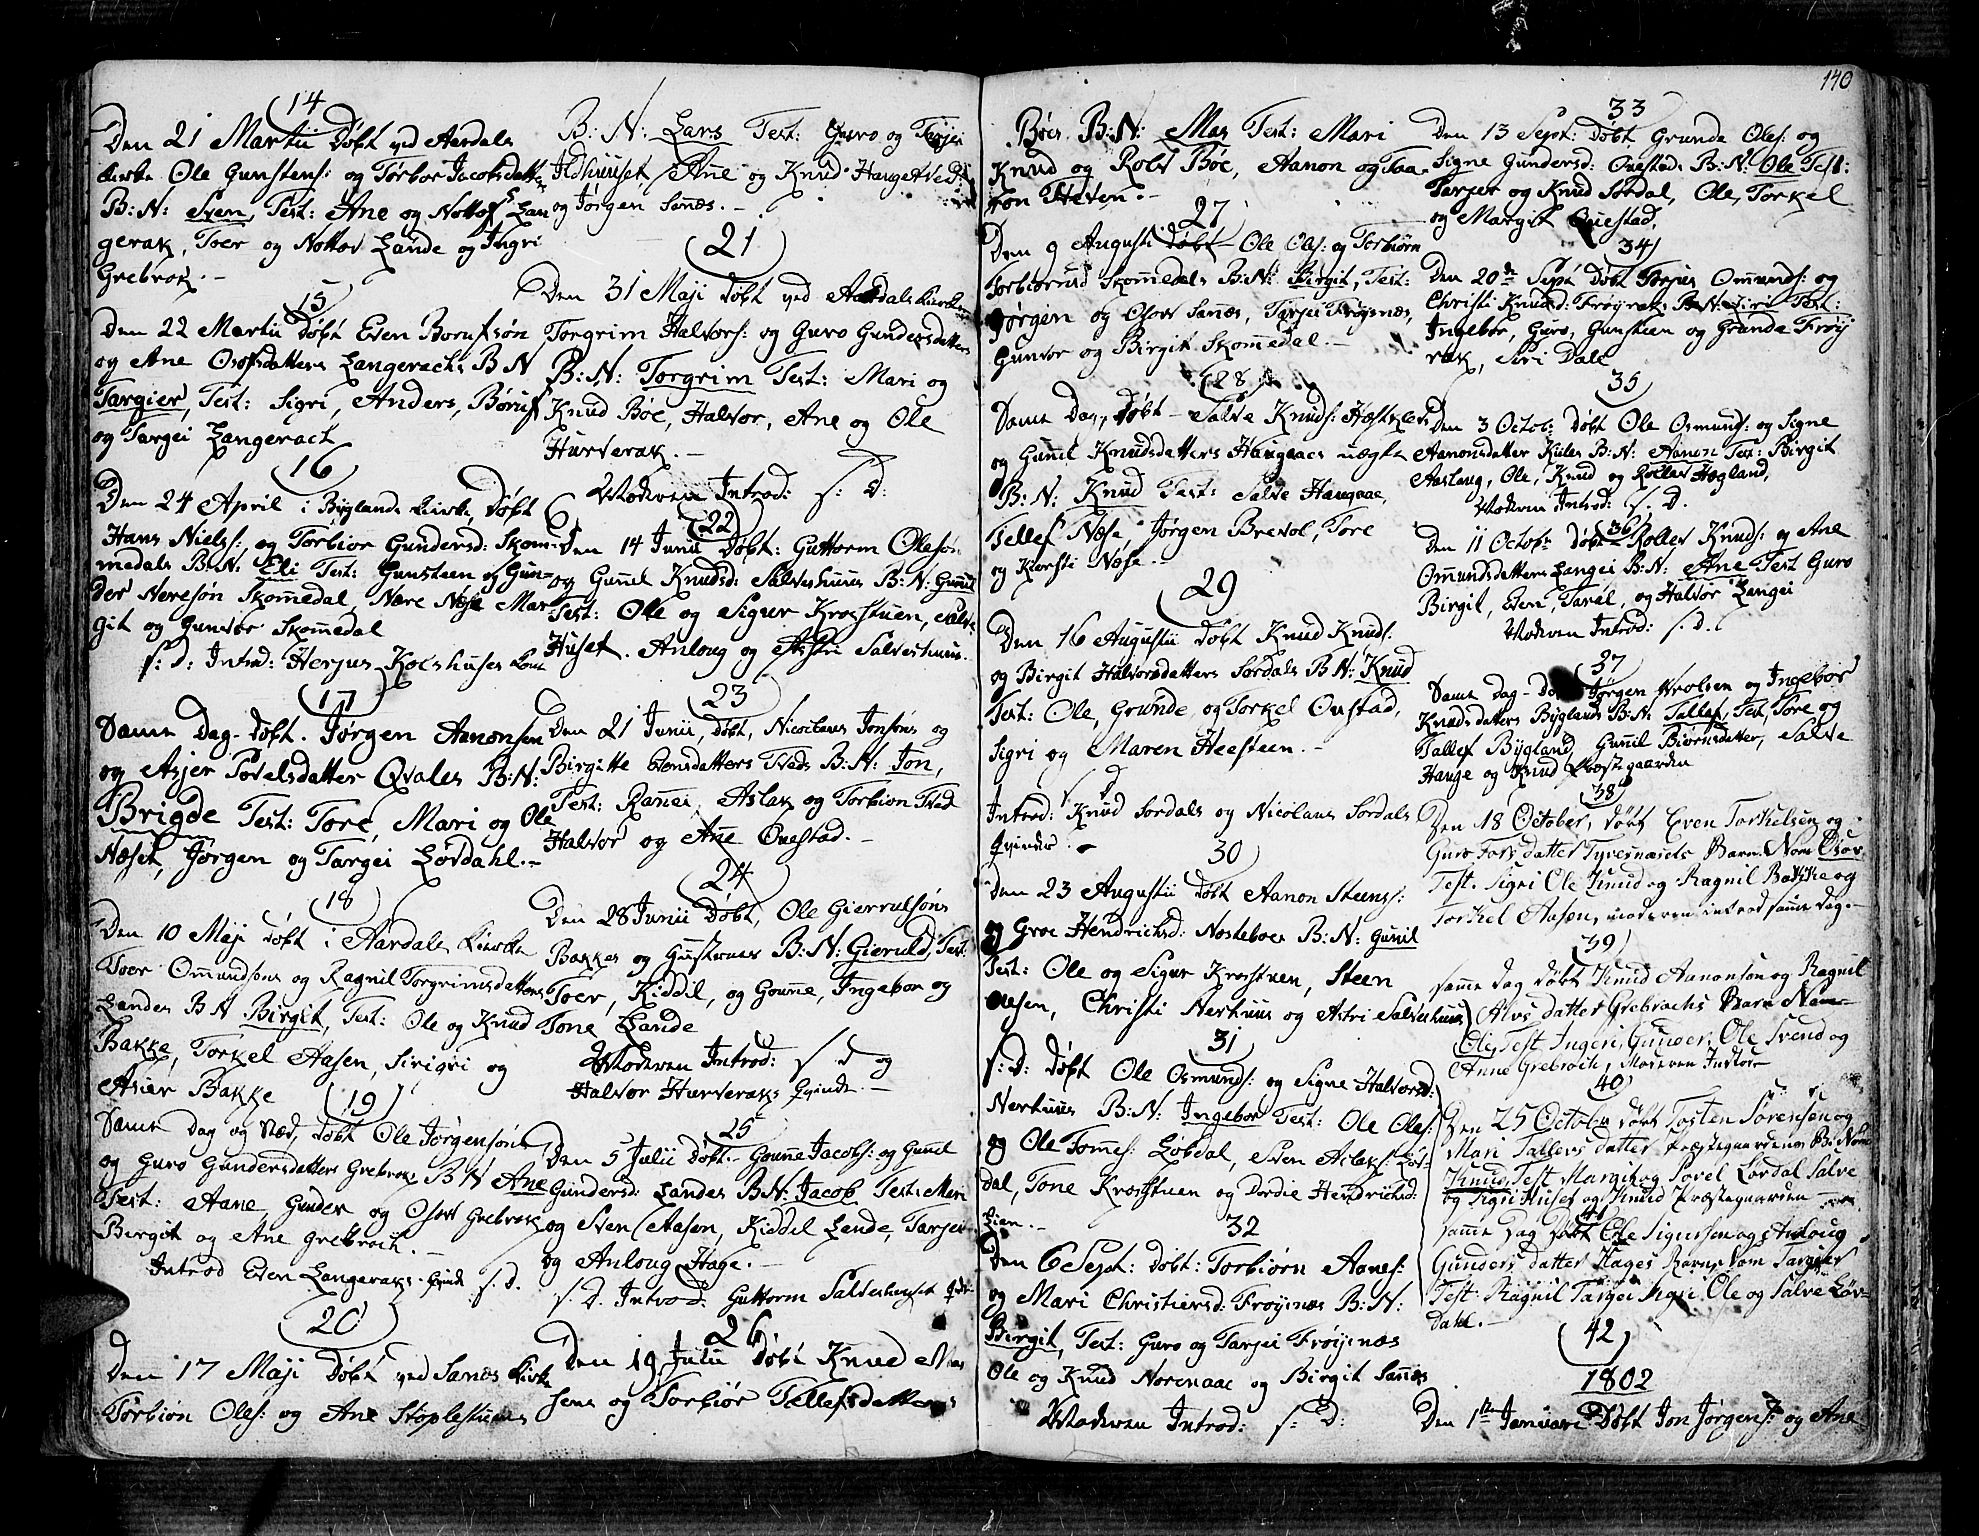 14
Den 21 Martii Døbt ved Aardals
Kirke Ole Gunstens: og Torbor Jacobsdatters
B: N: Sven, Test: Ane og Nottof Lan
gerak, Toer og Nottov Lande og Ingri
Grebrok. -
15
Den 22 Martii Døbt Even Borufsøn
og Ane Osofsdatters Langerachs B N
Targier, Test: Sigri, Anders, Børuf
og Targei Langerach
16
Den 24 April i Byglands Kirke, Døbt
Hans Niels: og Torbior Gundersd: Skom-
medals B: N: Eli Test: Gunsteen og Gun-
der Neresøn Skomedal, Nære Næse Mar
git og Gunvor Skomedal
s: d: Introd: Herjus Koeshuses Kone
17
Samme Dag - Døbt. Jørgen Aanonsen
og Asjer Povelsdatter Qvales B: N:
Brigde Test: Tore, Mari og Ole
Næset, Jørgen og Targei Lørdahl. -
18
Den 10 Maji døbt i Aardals Kircke
Toer Ommundsøns og Ragnil Torgrimsdatters
Landes B N Birgit, Test: Ole og Knud
Bakke, Torkel Aasen, Sirigri og
Asier Bakke
19
Samme dag og Stæd, døbt Ole Jørgensøns
og Guro Gundersdatters Grebroks B N Ane
Test: Aane, Gunder og Osovf Grebrok
Birgit og Ane Grebroch. -
Introd Even Langeraks Qvinde s. d.
20
Den 17 Maji Døbt ved Sanes Kirke
Torbiøn Oles: og Ane Stoplestuens
B: N: Lars Test: Guro og Tarjei
Ildhuuset, Ane og Knud Haugetvedt
og Jørgen Sanes. -
21
Den 31 Maji døbt ved Aardals Kirke
Torgrim Halvors: og Guro Gundersdatters
B: N: Torgrim Test: Mari og
Knud Bøe, Halvor, Ane og Ole
Hurverak. -
Moderen Introd: s: d:
22
Den 14 Junii Døbt: Guttorm Olesøn
og Gunnil Knudsd: Salveshuus B: N: Gunnil
Test: Ole og Sigur Krosstuen, Salve
Huset. Anlong og Astri Salveshuus.
23
Den 21 Junii, Døbt, Nicolaus Jonsøns og
Birgitte Evensdatters Tveds B: N: Jon,
Test: Rannei, Aslak og Torbion Tved
Halvor og Ane Ovestad. -
24
Den 28 Junii Døbt, Ole Gierrulsøns
Bakkes og Hustrues B: N: Gieruld, Test:
Toer, Kiddil, og Goune, Ingebor og
Tone Lande
Moderen Introd: s. d og
Halvor Hurveraks Qvinde. -
25
Den 5 Julii Døbt. - Goune Jacobs: og Gunnil
Gundersd: Landes B: N: Jacob Test: Mari
og Sven Aasen, Kiddil Lande, Tarjer
og Anlong Hage. -
s. d. Introd: Guttorm Salveshuset Qvinde
26
Den 19 Julii Døbt Knud Mas
sens og Torbiør Tellefsdatters
140
Bøes B: N: Mas Test: Mari
Knud og Rolv Bøe, Aanon og Taa-
ron Heven. -
27
Den 9 Augusti Døbt - Ole Ols: og Torbiørn
Torbiørnsd Skomedals B: N: Birgit, Test:
Jørgen og Osov Sannes, Tarjei Frøisnæs,
Gunvor og Birgit Skomedal. -
28
Samme Dag, Døbt - Salve Knuds: Hæstkleiv
og Gunnil Knudsdatters Haugaaes uægte
B: N: Knud Test: Salve Haugaae,
Tellef Næse, Jørgen Brevol, Tore
og Kiersti Næse. -
29
Den 16 Augustii Døbt Knud Knuds:
og Birgit Halvorsdatters Sordals B N: Knud
Test: Ole, Grunde, og Torkel Ovstad,
Sigri og Maren Heesteen. -
s d
Introd: Knud Sordals og Nicolaus Sordals
Qvinder. -
30
Den 23 Augustii Døbt Aanon Steens:
og Groe Hendricksd: Nosteboes B: N: Gunil
Test: Ole og Sigur Krosstuen, Steen
Olesen, Christi Nerhuus og Astri Salveshuus
31
s: d: døbt Ole Osmunds: og Signe Halvorsd:
Nerhuus B: N: Ingebor Test: Ole Oles:
og Ole Tomes: Løbdal, Sven Aslaks: Lør-
dal, Tone Krosstuen og Dordie Hendricksd:
Lien. -
32
Den 6 Sept: Døbt: Torbiørn Aanes:
og Mari Christiersd: Frøysnæs B: N:
Birgit, Test: Guro og Tarjei Frøiysnæs
Ole og Knud Norenaae og Birgit Sannæs
Moderen Introd: s: d:
33
Den 13 Sept: Døbt Grunde Oles: og
Signe Gundersd: Ovestads B: N: Ole Test:
Tarjer og Knud Sordal, Ole, Torkel
og Margit Ouestad,
34
Den 20de Sept Døbt Torjus Ommunds: og
Christi Knudsd: Frøyraks B: N: Siri Test:
Ingebor, Guro, Gunsteen og Grunde Frøy
rak, Siri Dale
35
Den 3 Octob: Døbt Ole Osmunds: og Signe
Aanonsdatter Kiles B: N: Aanon Test: Birgit
Aaslaug, Ole, Knud og Rollev Høgland,
Moderen Introd: s. d.
36
Den 11 Octobr Døbt Rollev Knuds: og Ane
Ommundsdatters Langei B: N: Ane Test Guro
Birgit, Even, Tarel, og Halvor Langei
Moderen Introd: s. d.
37
Samme dag - Døbt Jørgen Arolsen og Ingebor
Knudsdatters Byglands B: N: Tallef, Test, Tore og
Tallef Bygland, Gunnil Biørnsdatter, Salve
Hauge og Knud Præstegaarden
38
Den 18 October, døbt Even Torkelsen og
Guro Tors datter Tyresnæsets Barn. Navn Osov
Test. Sigri Ole Knud og Ragnil Bakke og
Torkel Aasen, moderen introd samme dag. -
39
samme dag døbt Knud Aanonsøn og Ragnil
Alvs datter Grebrochs Barn Navn
Oli, Test Ingeri, Gunver, Ole Svend og
Anne Grebroch, Moderen Introd
40
Den 25 October døbt Tosten Sørensen og
Mari Tallevs datter Præstegaardens B: Navn
Knud, Test Margit og Povel Lørdal Salve
og Sigri Huset og Knud Præstegaarden
41
samme Dag døbt Ole Sigursen og Anloug
Gunders datter Hages Barns Navn Targier
Test: Ragnil Targei Mari Ole og Salve Lør-
dahl. -
42
1802
Den 1te Januari Døbt Jon Jørgens: og Ane